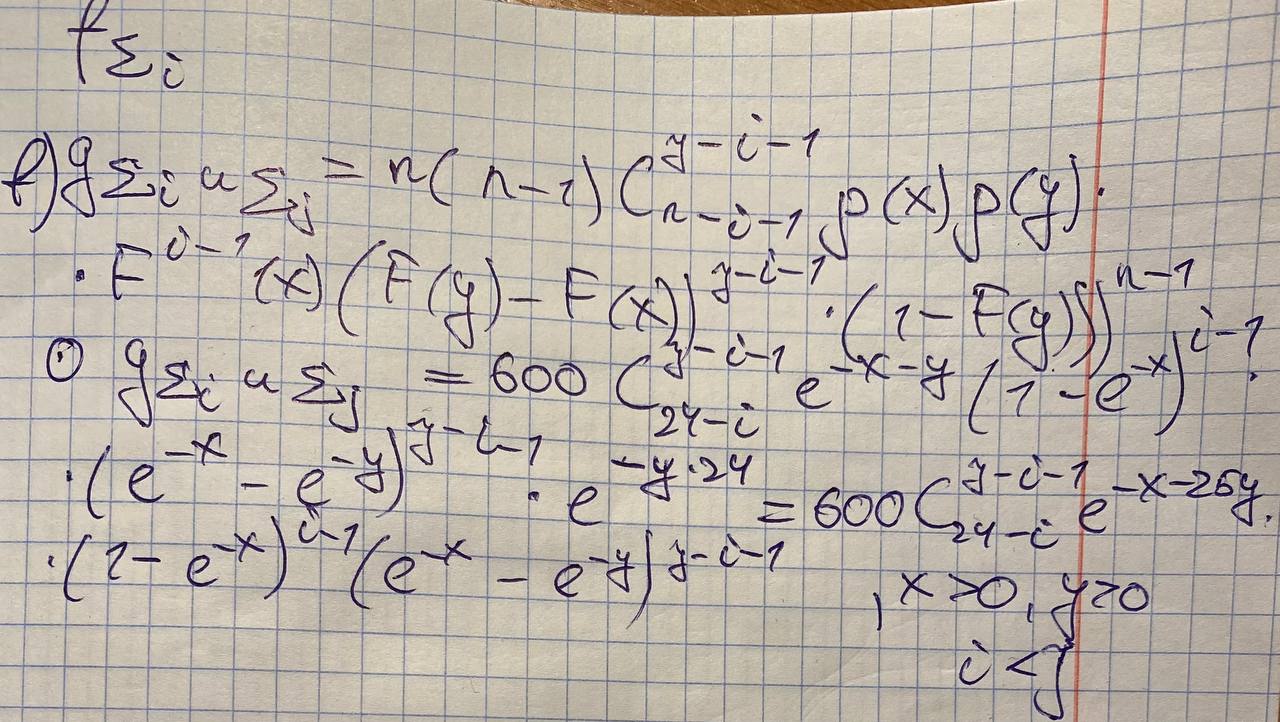 f_{Σ_i}
f) g_{Σ_i и Σ_j} = n(n-1) C_{n-i-1}^{j-i-1} p(x) p(y) ·
· F^{i-1}(x) (F(y) - F(x))^{j-i-1} · (1 - F(y))^{n-1}
⊙ g_{Σ_i и Σ_j} = 600 C_{24-i}^{j-i-1} e^{-x-y} (1 - e^{-x})^{i-1} ·
· (e^{-x} - e^{-y})^{j-i-1} · e^{-y·24} = 600 C_{24-i}^{j-i-1} e^{-x-25y} ·
· (1 - e^{-x})^{i-1} (e^{-x} - e^{-y})^{j-i-1}
, x > 0, y > 0
i < j